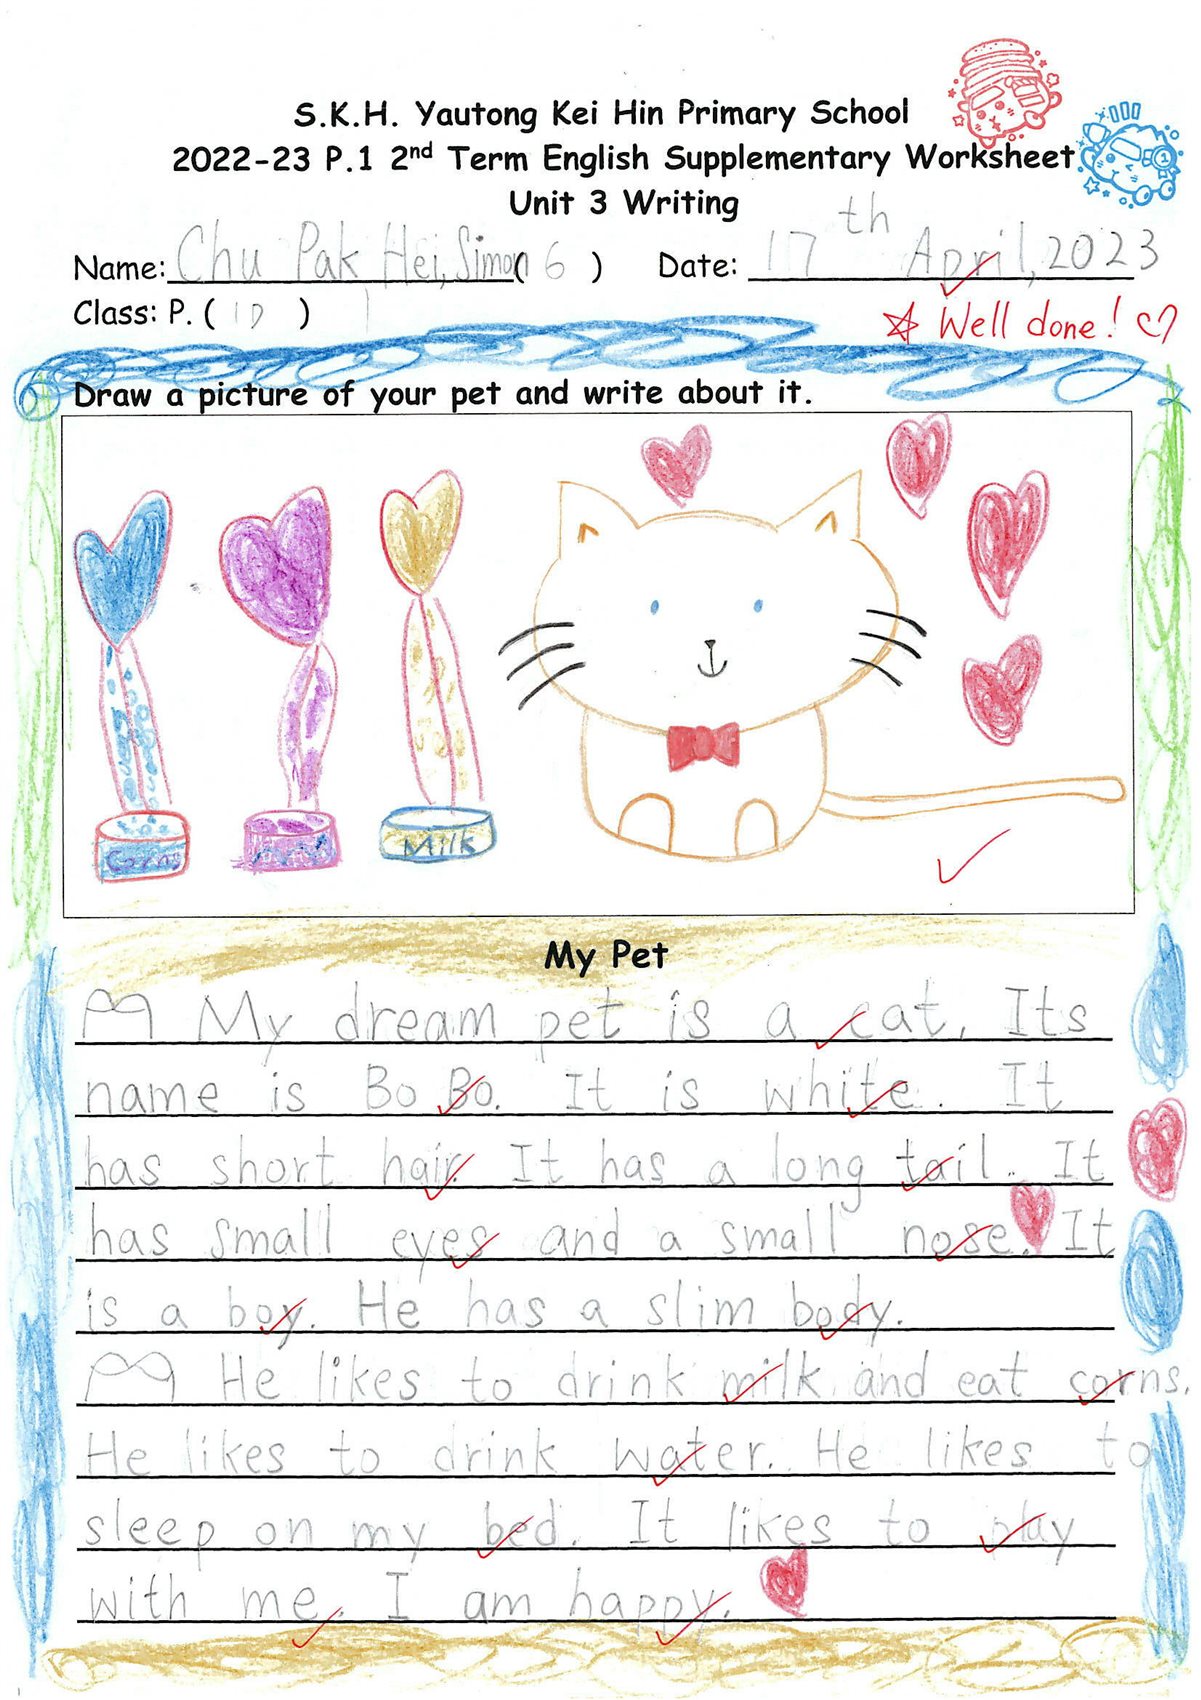 S.K.H. Yautong Kei Hin Primary School
2022-23 P.1 2nd Term English Supplementary Worksheet
Unit 3 Writing
Name: Chu Pak Hei, Simon ( 6 ) Date: 17th April, 2023
Class: P. ( 1D )
Well done!
Draw a picture of your pet and write about it.
Corns
Milk
My Pet
My dream pet is a cat. Its
name is Bo Bo. It is white. It
has short hair. It has a long tail. It
has small eyes and a small nose. It
is a boy. He has a slim body.
He likes to drink milk and eat corns.
He likes to drink water. He likes to
sleep on my bed. It likes to play
with me. I am happy.